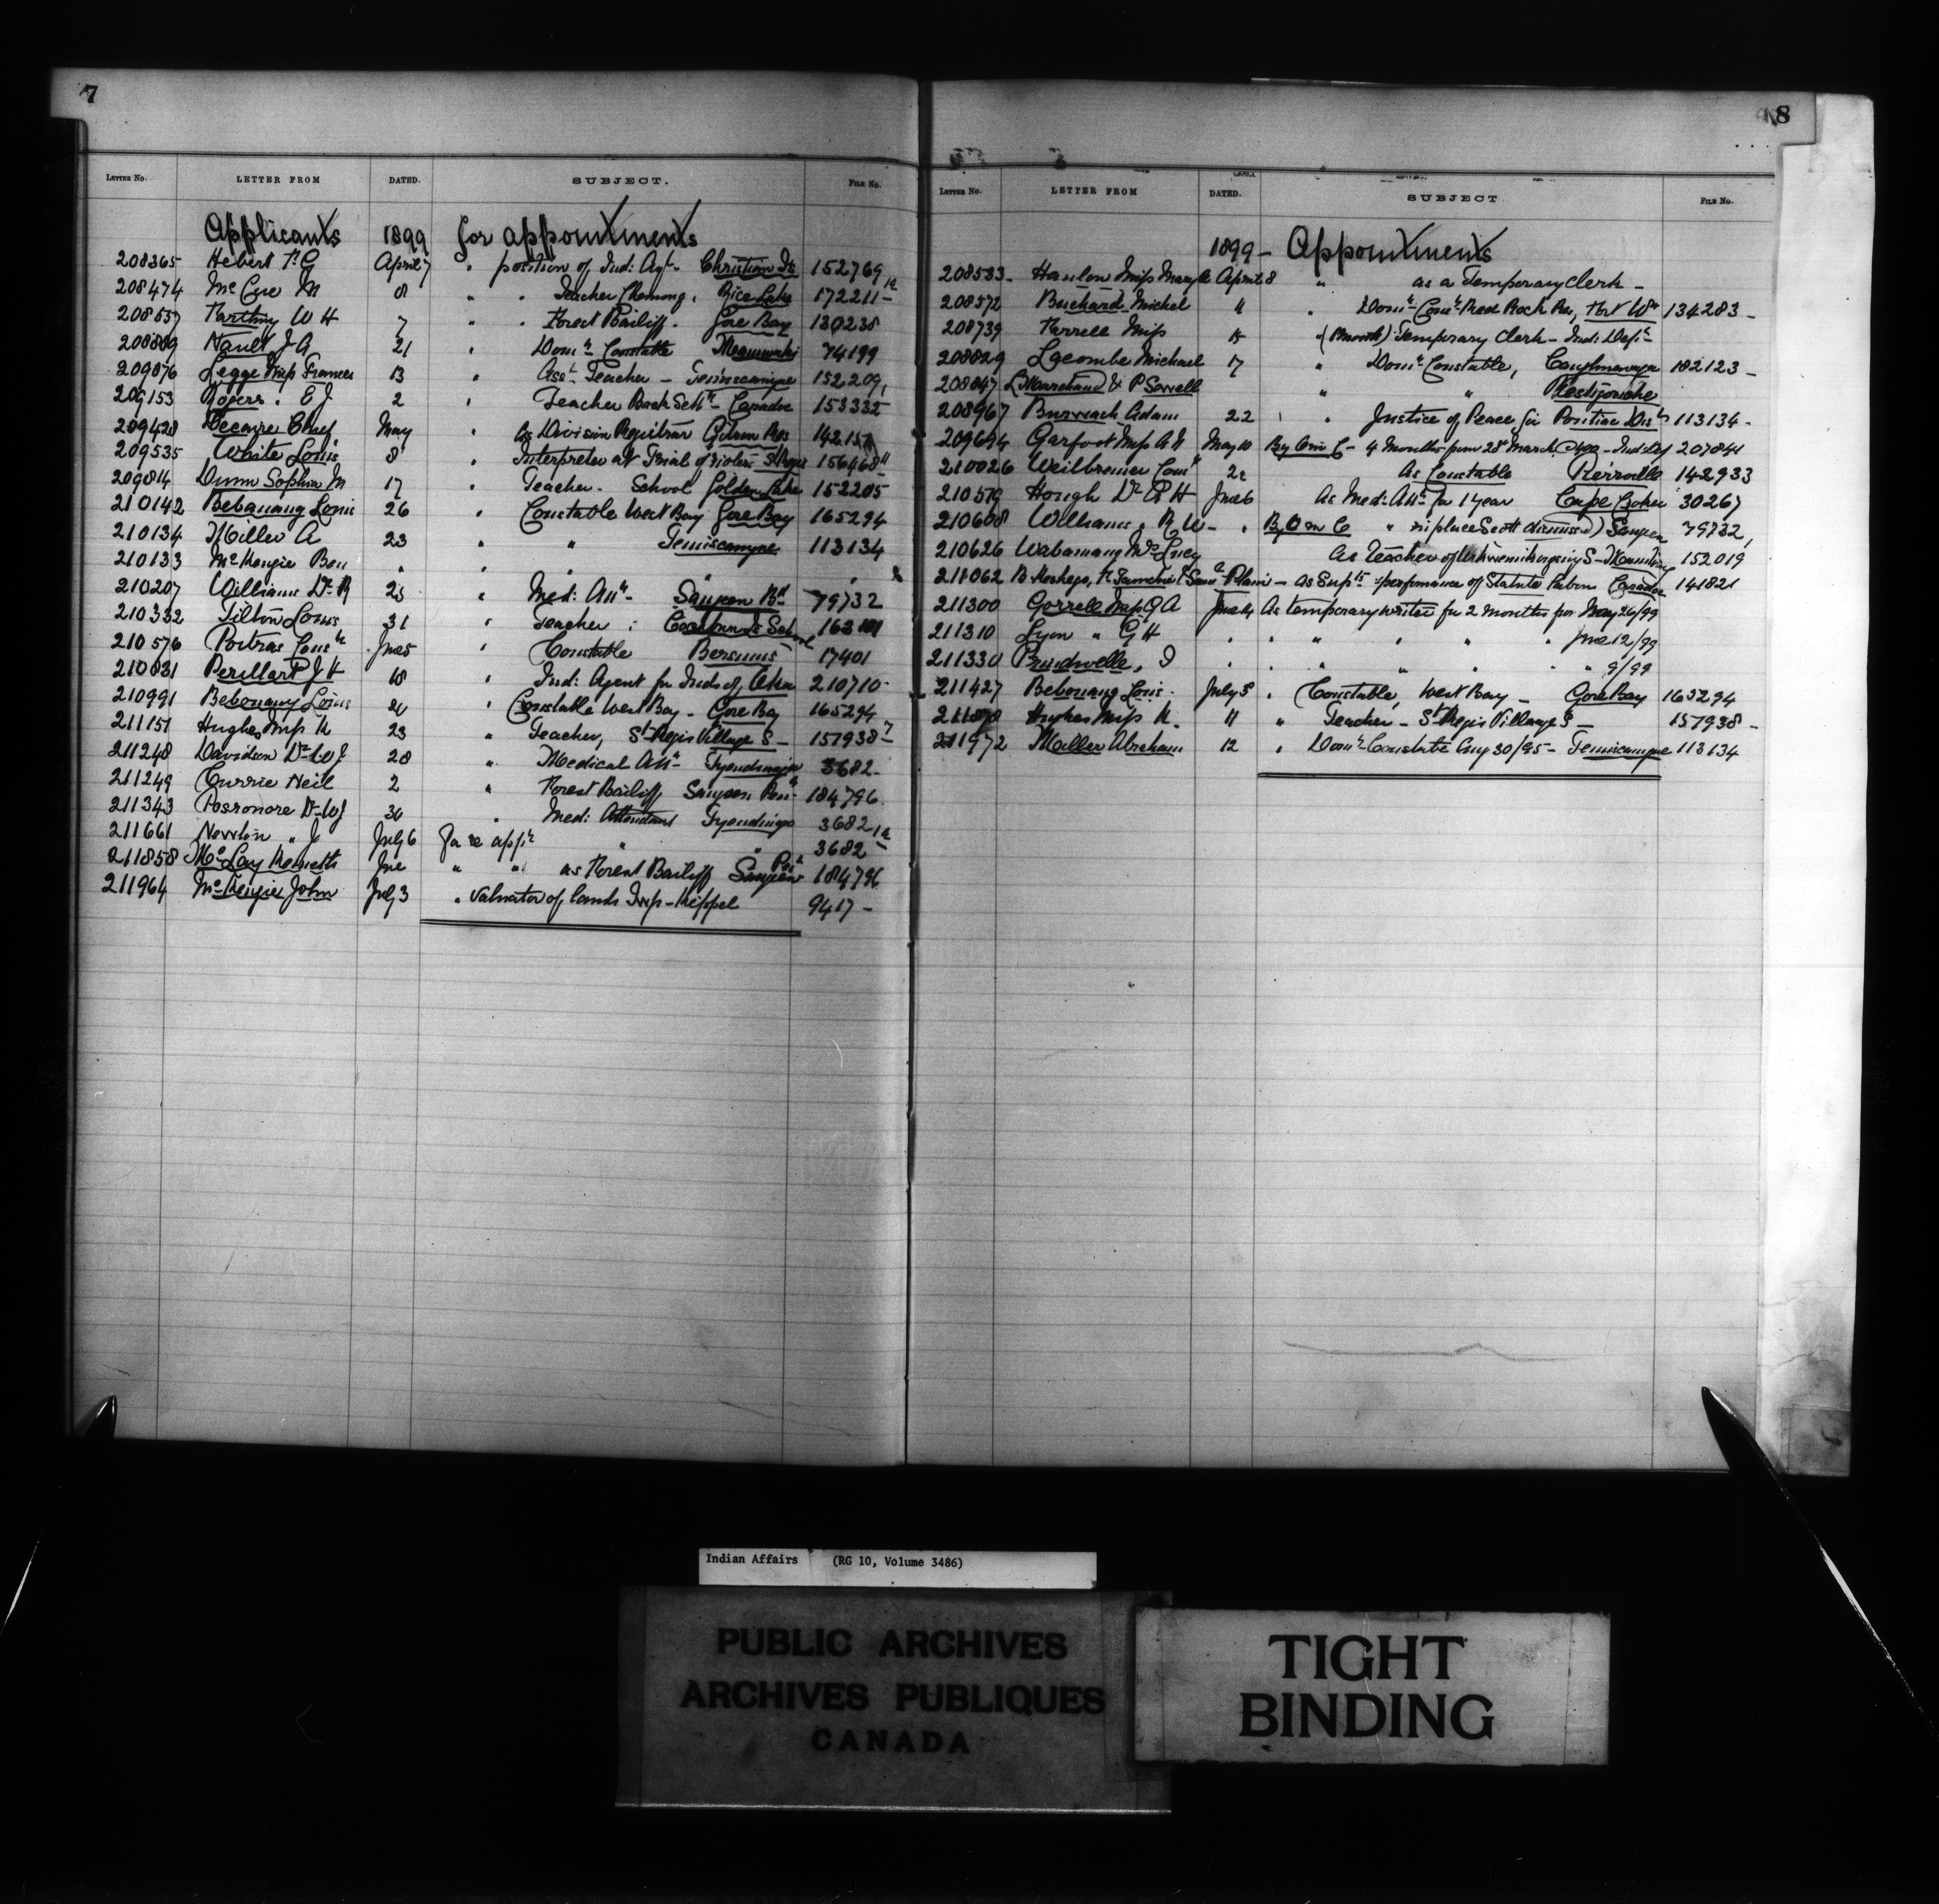 7
LETTER No. LETTER FROM DATED. SUBJECT. FILE No.
Applicants 1899 for appointments
208365 Hebert F. C April 7 " position of Ind: Agt- Christian Is 152769
208474 McCue M 8 " " Teacher Chemong, Rice Lake 172211-1a
208637 W H 7 " " Forest Bailiff. Gore Bay 130238
208889 Nault J A 21 " Domn Constable Maniwaki 74199
209076 Legge Miss Frances 13 " Asst Teacher - Temiscamingue 152209,
209153 Rogers. E J 2 " Teacher Back Settt Caradoc 153332
209428 Decaire Chief May " as Division Registrar Gibson Res 142151
209535 White Louis 8 " Interpreter at Trial of rioters St Regis 156468
209814 Dunn Sophia M 17 " Teacher - School Golden Lake 152205
210142 Bebonang Louis 26 " Constable West Bay Gore Bay 165294
210134 Miller A 23 " " Temiscamgue 113134
210133 McKenzie Ben " " " " "
210207 Williams Dr R 23 " Med: Attt- Saugeen Bd 79732
210332 Tilton Louis 31 " Teacher : School 163
210576 Poitras Const June 5 " Constable Bersimis 17401
210831 J H 18 " Ind: Agent for Inds of 210710-
210991 Bebonang Louis 20 " Constable West Bay - Gore Bay 165294
211151 Hughes Miss K 23 " Teacher, St Regis Village S - 157938-
211248 Davidson Dr W J 28 " Medical Attt- Tyendinaga 3682-
211249 Currie Neil 2 " Forest Bailiff Saugeen Pena 184796.
211343 Dr W J 30 " Med: Attendant Tyendinaga 3682
211661 Newton " J July 6 for re applt " " 3682 1a
211858 McLay Kenneth June " " as Forest Bailiff Saugeen Pena 184796
211964 McKenzie John July 3 " Valuator of lands Twp - Keppel 9417-
8
LETTER No. LETTER FROM DATED. SUBJECT FILE No.
1899- Appointments
208533- Hanlon Miss Mary A April 8 " as a Temporary Clerk -
208572 Buchard Michel " " Domn Conste Red Rock Res, Fort Wm 134283-
208739 Farrell Miss 15 (1 month) Temporary Clerk - Ind: Dept
208829 Lacombe Michael 17 " Domn Constable, Caughnawaga 182123-
208847 L Marchand & P Sorrell " " Restigouche
208967 Burwash Adam 22 " " Justice of Peace for Pontiac Dist 113134-
209694 Garfoot Miss A N May 10 By O in C - 4 Months from 28th March - Ind: Dep 207841
210026 Weilbrenner Const 22 As Constable Pierreville 142933
210579 Hough Dr R H June 6 As Med: Attt for 1 year Cape Croker 30267
210608 Williams " R W- " By O in C " in place Scott dismissed) Saugeen 79732,
210626 Wabanang Mrs Lucy As Teacher of S - 152019
211062 as Supts performance of Statute Labor Caradoc 141821
211300 Gorrell Miss Q A June 14 As temporary writer for 2 Months from May 26/99
211310 Lyon " G H " " " " " " June 12/99
211330 Brudwelle, I " " " " " " 9/99
211427 Bebonang Louis - July 5 " Constable, West Bay - Gore Bay 165294
211878 Hughes Miss K- 11 " Teacher - St Regis Village S - 157938-
211972 Miller Abraham 12 " Domn Constable Aug 30/95- Temiscamgue 113134
Indian Affairs (RG 10, Volume 3486)
PUBLIC ARCHIVES
ARCHIVES PUBLIQUES
CANADA
TIGHT
BINDING